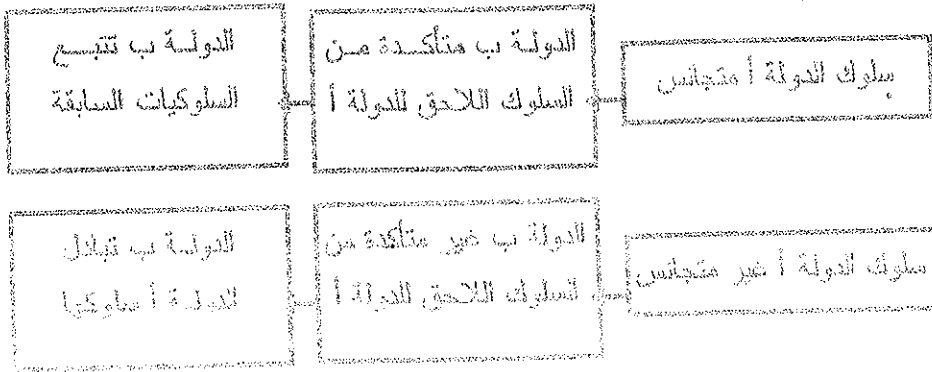 سلوك الدولة أ متجانس
الدولة ب متأكدة من
السلوك اللاحق للدولة أ
الدولة ب تتبع
السلوكيات السابقة
سلوك الدولة أ غير متجانس
الدولة ب غير متأكدة من
السلوك اللاحق للدولة أ
الدولة ب تبادل
الدولة أ سلوكها